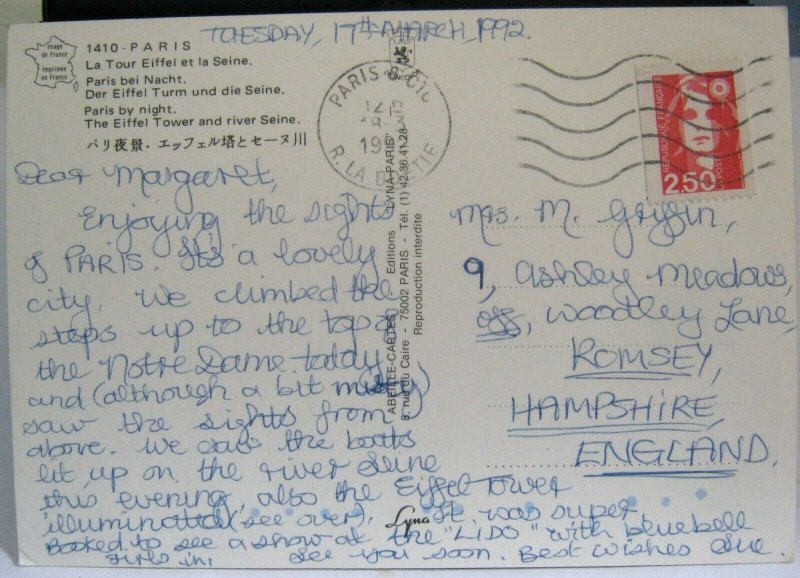 TUESDAY, 17TH MARCH, 1992.
Image de France
Imprimée en France
1410 - PARIS
La Tour Eiffel et la Seine.
Paris bei Nacht.
Der Eiffel Turm und die Seine.
Paris by night.
The Eiffel Tower and river Seine.
パリ夜景・エッフェル塔とセーヌ川
PARIS
R. LA
REPUBLIQUE FRANÇAISE
LA POSTE
2,50
ABEILLE-CARTES Editions "LYNA-PARIS"
8, rue du Caire - 75002 PARIS - Tél. (1) 42.36.41.28
Reproduction interdite
Dear Margaret,
Enjoying the sights
of PARIS. It's a lovely
city. We climbed the
steps up to the top of
the Notre Dame today
and (although a bit misty)
saw the sights from
above. We saw the boats
lit up on the river Seine
this evening, also the Eiffel Tower
illuminated (see over). It was super.
Booked to see a show at the "LIDO" with bluebell
girls in. See you soon. Best wishes Sue.
Lyna
Mrs. M. Griffin,
9, Ashley Meadows,
off, Woodley Lane,
ROMSEY,
HAMPSHIRE,
ENGLAND.